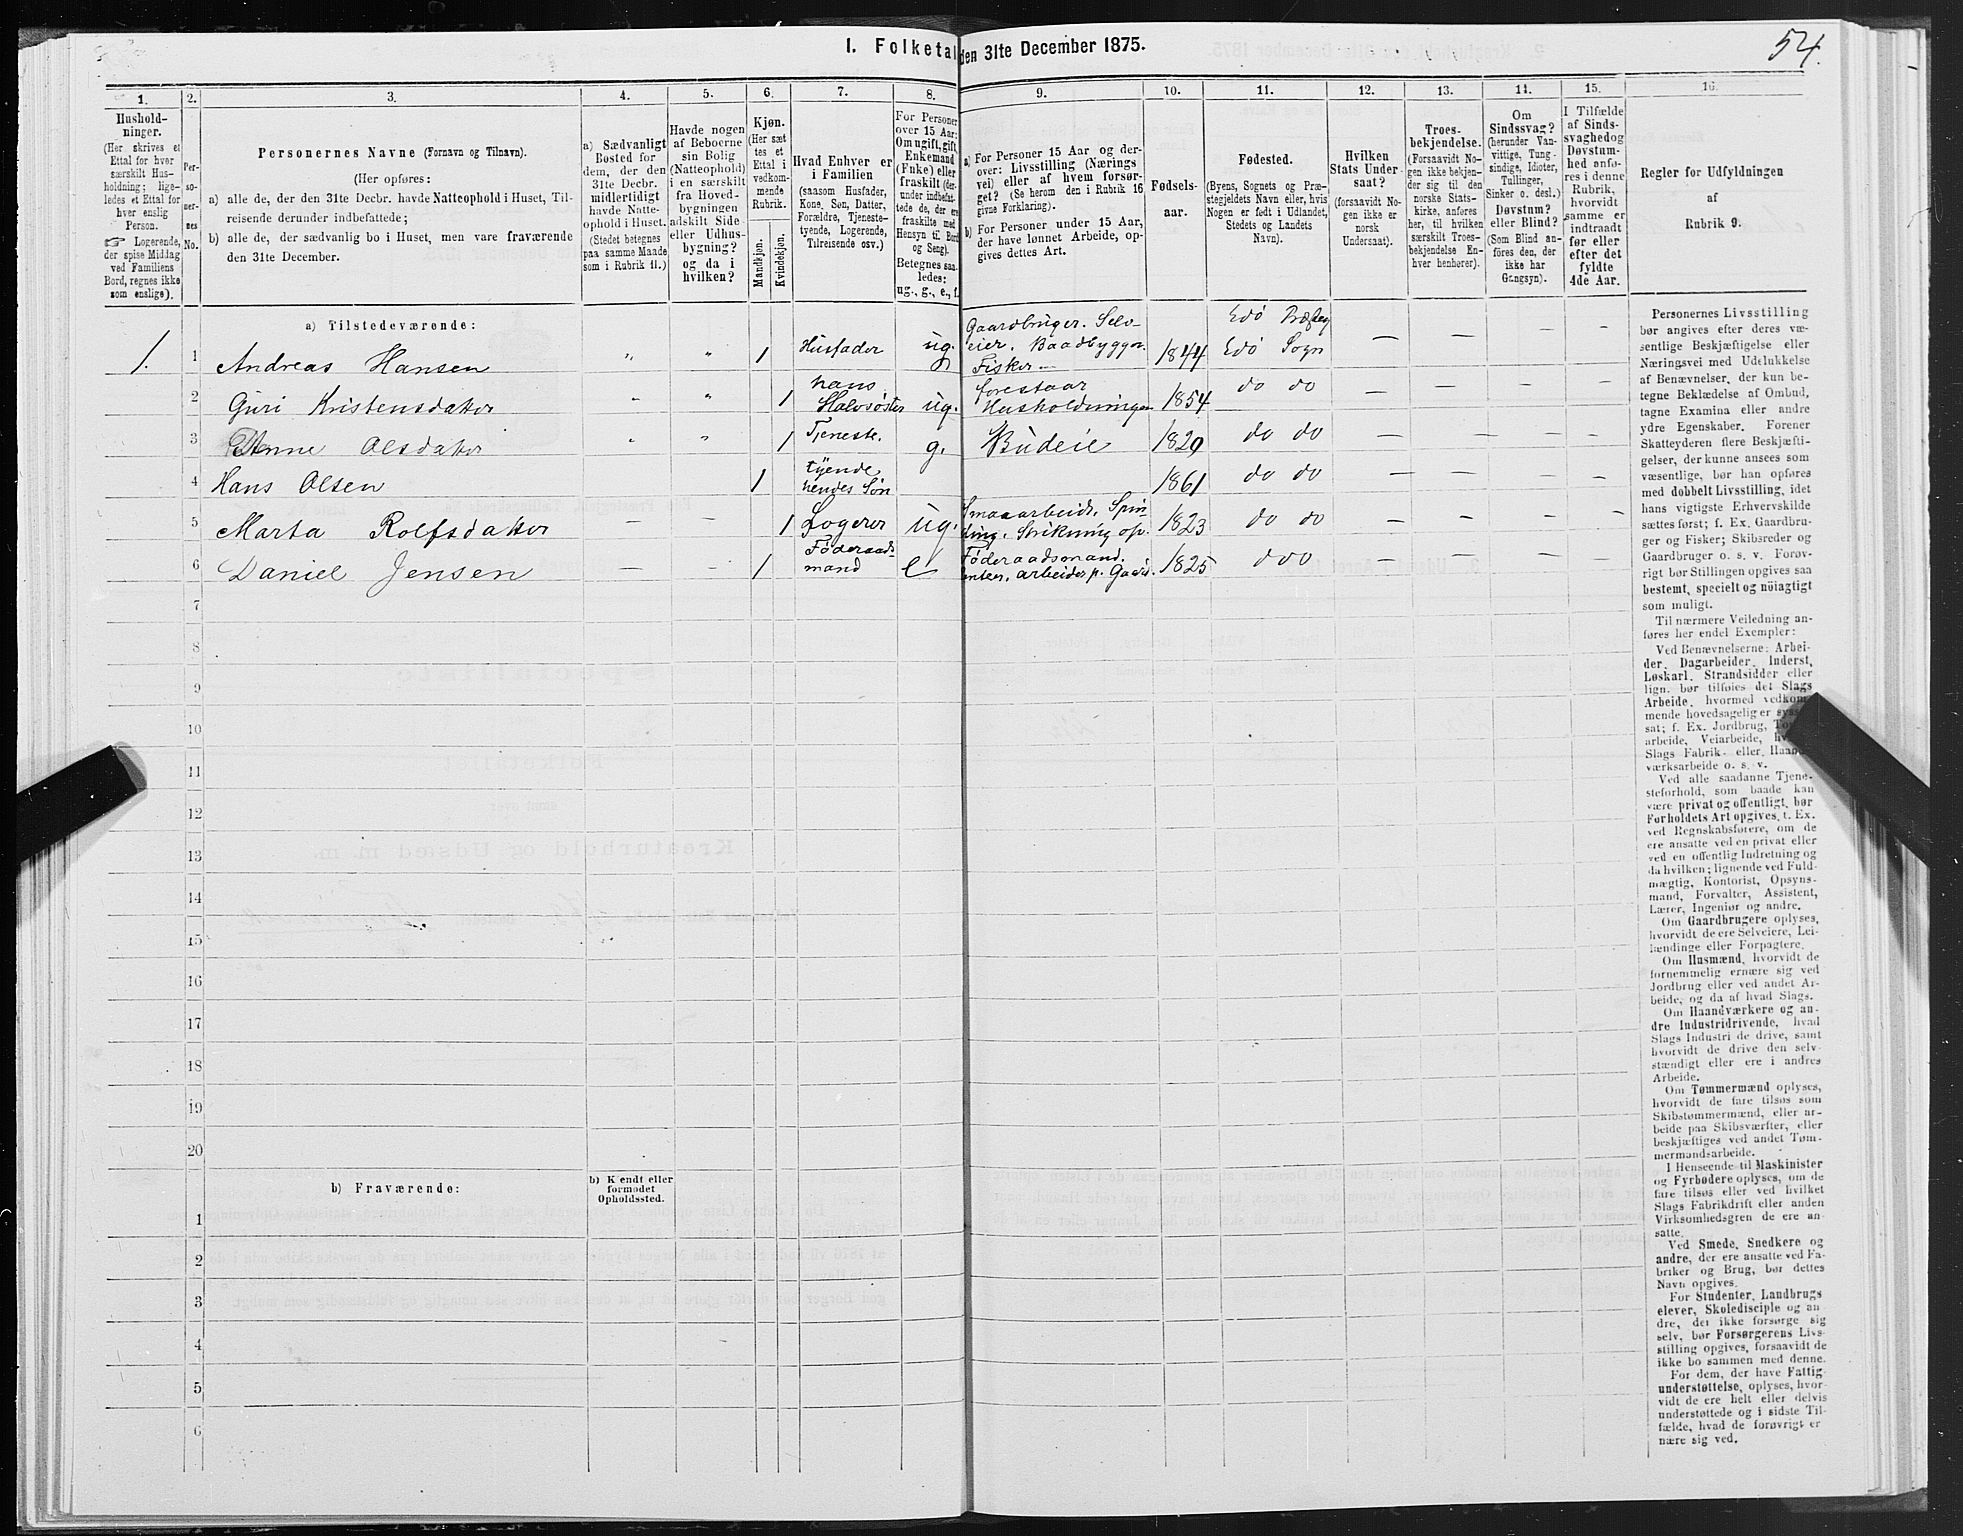 54.
I. Folketal den 31te December 1875.
1. 2. 3. 4. 5. 6. 7. 8. 9. 10. 11. 12. 13. 14. 15. 16.
Hushold-
ninger.
(Her skrives et
Ettal for hver
særskilt Hus-
holdning; lige-
ledes et Ettal for
hver enslig
Person.
☞ Logerende,
der spise Middag
ved Familiens
Bord, regnes ikke
som enslige).
Per-
so-
ner-
nes
No.
Personernes Navne (Fornavn og Tilnavn).
(Her opføres:
a) alle de, der den 31te Decbr. havde Natteophold i Huset, Til-
reisende derunder indbefattede;
b) alle de, der sædvanlig bo i Huset, men vare fraværende
den 31te December.
a) Sædvanligt
Bosted for
dem, der den
31te Decbr.
midlertidigt
havde Natte-
ophold i Huset.
(Stedet betegnes
paa samme Maade
som i Rubrik 11.)
Havde nogen
af Beboerne
sin Bolig
(Natteophold)
i en særskilt
fra Hoved-
bygningen
adskilt Side
eller Udhus-
bygning?
og da i
hvilken?
Kjøn.
(Her sæt
tes et
Ettal i
vedkom-
mende
Rubrik.
Mandkjøn.
Kvindekjøn.
Hvad Enhver er
i Familien
(saasom Husfader,
Kone, Søn, Datter,
Forældre, Tjeneste-
tyende, Logerende,
Tilreisende osv.)
For Personer
over 15 Aar;
Om ugift, gift,
Enkemand
(Enke) eller
fraskilt (der-
under indbefat-
tede de, der ere
fraskilte med
Hensyn til Bord
og Seng).
Betegnes saa-
ledes:
ug., g., e., f.
a) For Personer 15 Aar og der-
over: Livsstilling (Nærings
vei) eller af hvem forsør-
get? (Se herom den i Rubrik 16
givne Forklaring).
b) For Personer under 15 Aar,
der have lønnet Arbeide, op-
gives dettes Art.
Fødsels-
aar.
Fødested.
(Byens, Sognets og Præ-
stegjeldets Navn eller, hvis
Nogen er født i Udlandet,
Stedets og Landets
Navn).
Hvilken
Stats Under-
saat?
(forsaavidt No-
gen ikke er
norsk
Undersaat).
Troes-
bekjendelse.
(Forsaavidt No-
gen ikke bekjen-
der sig til den
norske Stats-
kirke, anføres
her, til hvilken
særskilt Troes-
bekjendelse En-
hver henhører).
Om
Sindssvag?
(herunder Van-
vittige, Tung-
sindige, Idioter,
Tullinger,
Sinker o. desl.)
Døvstum?
eller Blind?
(Som Blind an-
føres den, der
ikke har
Gangsyn).
I Tilfælde
af Sinds-
svaghed og
Døvstum-
hed anfø-
res i denne
Rubrik,
hvorvidt
samme er
indtraadt
før eller
efter det
fyldte
4de Aar.
Regler for Udfyldningen
af
Rubrik 9.
a) Tilstedeværende:
1. 1 Andreas Hansen " " 1 Husfader ug. Gaardbruger. Selv-
eier. Baadbygger.
Fisker 1844 Edø Præsteg
Edø Sogn — — — –
2 Guri Kristensdatter " " 1 hans
Halvsøster ug. forestaar
Husholdningen 1854 do do — — — –
3 Anne Olsdatter " " 1 Tjeneste- g. Budeie 1829 do do — — — –
4 Hans Olsen 1 tyende
hendes Søn 1861 do do — — — –
5 Marta Rolfsdatter — — 1 Logerer ug. Smaaarbeide. Spin-
ding. Strikning op. 1823 do do — — — –
6 Daniel Jensen — — 1 Føderaads-
mand e Føderaadsmand.
arbeider p. Gaard. 1825 do do — –
7
8
9
10
11
12
13
14
15
16
17
18
19
20
b) Fraværende:
b) Kjendt eller
formodet
Opholdssted.
1
2
3
4
5
6
Personernes Livsstilling
bør angives efter deres væ-
sentlige Beskjæftigelse eller
Næringsvei med Udelukkelse
af Benævnelser, der kun be-
tegne Beklædelse af Ombud,
tagne Examina eller andre
ydre Egenskaber. Forener
Skatteyderen flere Beskjæfti-
gelser, der kunne ansees som
væsentlige, bør han opføres
med dobbelt Livsstilling, idet
hans vigtigste Erhvervskilde
sættes først; f. Ex. Gaardbru-
ger og Fisker; Skibsreder og
Gaardbruger o. s. v. Forøv-
rigt bør Stillingen opgives saa
bestemt, specielt og nöiagtigt
som muligt.
Til nærmere Veiledning an-
føres her endel Exempler:
Ved Benævnelserne: Arbei-
der, Dagarbeider, Inderst,
Løskarl, Strandsidder eller
lign. bør tilføies det Slags
Arbeide, hvormed vedkom-
mende hovedsagelig er syssel-
sat; f. Ex. Jordbrug,
arbeide, Veiarbeide,
Slags Fabrik- eller Haand-
værksarbeide o. s. v.
Ved alle saadanne Tjene-
steforhold, som baade kan
være privat og offentligt, bør
Forholdets Art opgives, t. Ex.
ved Regnskabsførere, om de
ere ansatte ved en privat eller
ved en offentlig Indretning og
da hvilken; lignende ved Fuld-
mægtig, Kontorist, Opsyns-
mand, Forvalter, Assistent,
Lærer, Ingeniør og andre.
Om Gaardbrugere oplyses,
hvorvidt de ere Selveiere, Lei-
lændinge eller Forpagtere.
Om Husmænd, hvorvidt de
fornemmelig ernære sig ved
Jordbrug eller ved andet Ar-
beide, og da af hvad Slags.
Om Haandværkere og an-
dre Industridrivende, hvad
Slags Industri de drive, samt
hvorvidt de drive den selv-
stændigt eller ere i andres
Arbeide.
Om Tømmermænd oplyses,
hvorvidt de fare tilsøs som
Skibstømmermænd, eller ar-
beide paa Skibsværfter, eller
beskjæftiges ved andet Tøm-
mermandsarbeide.
I Henseende til Maskinister
og Fyrbødere oplyses, om de
fare tilsøs eller ved hvilket
Slags Fabrikdrift eller anden
Virksomhedsgren de ere an-
satte.
Ved Smede, Snedkere og
andre, der ere ansatte ved Fa-
briker og Brug, bør dettes
Navn opgives.
For Studenter, Landbrugs
elever, Skoledisciple og an-
dre, der ikke forsørge sig
selv, bør Forsørgerens Livs-
stilling opgives, forsaavidt de
ikke bo sammen med denne.
For dem, der have Fattig-
understøttelse, oplyses, hvor-
vidt de ere helt eller delvis
understøttede og i sidste Til-
fælde, hvad de forøvrigt er
nære sig ved.